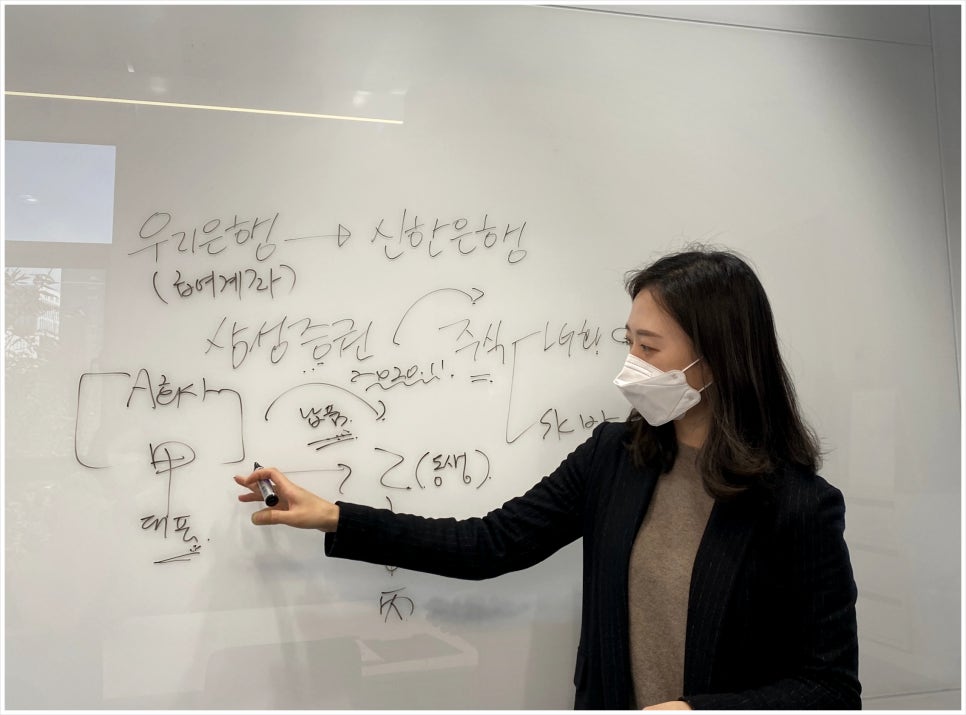 우리은행 → 신한은행
(급여계좌)
삼성증권 주식
A회사
납품
甲 → 乙 (동생)
대표
丙